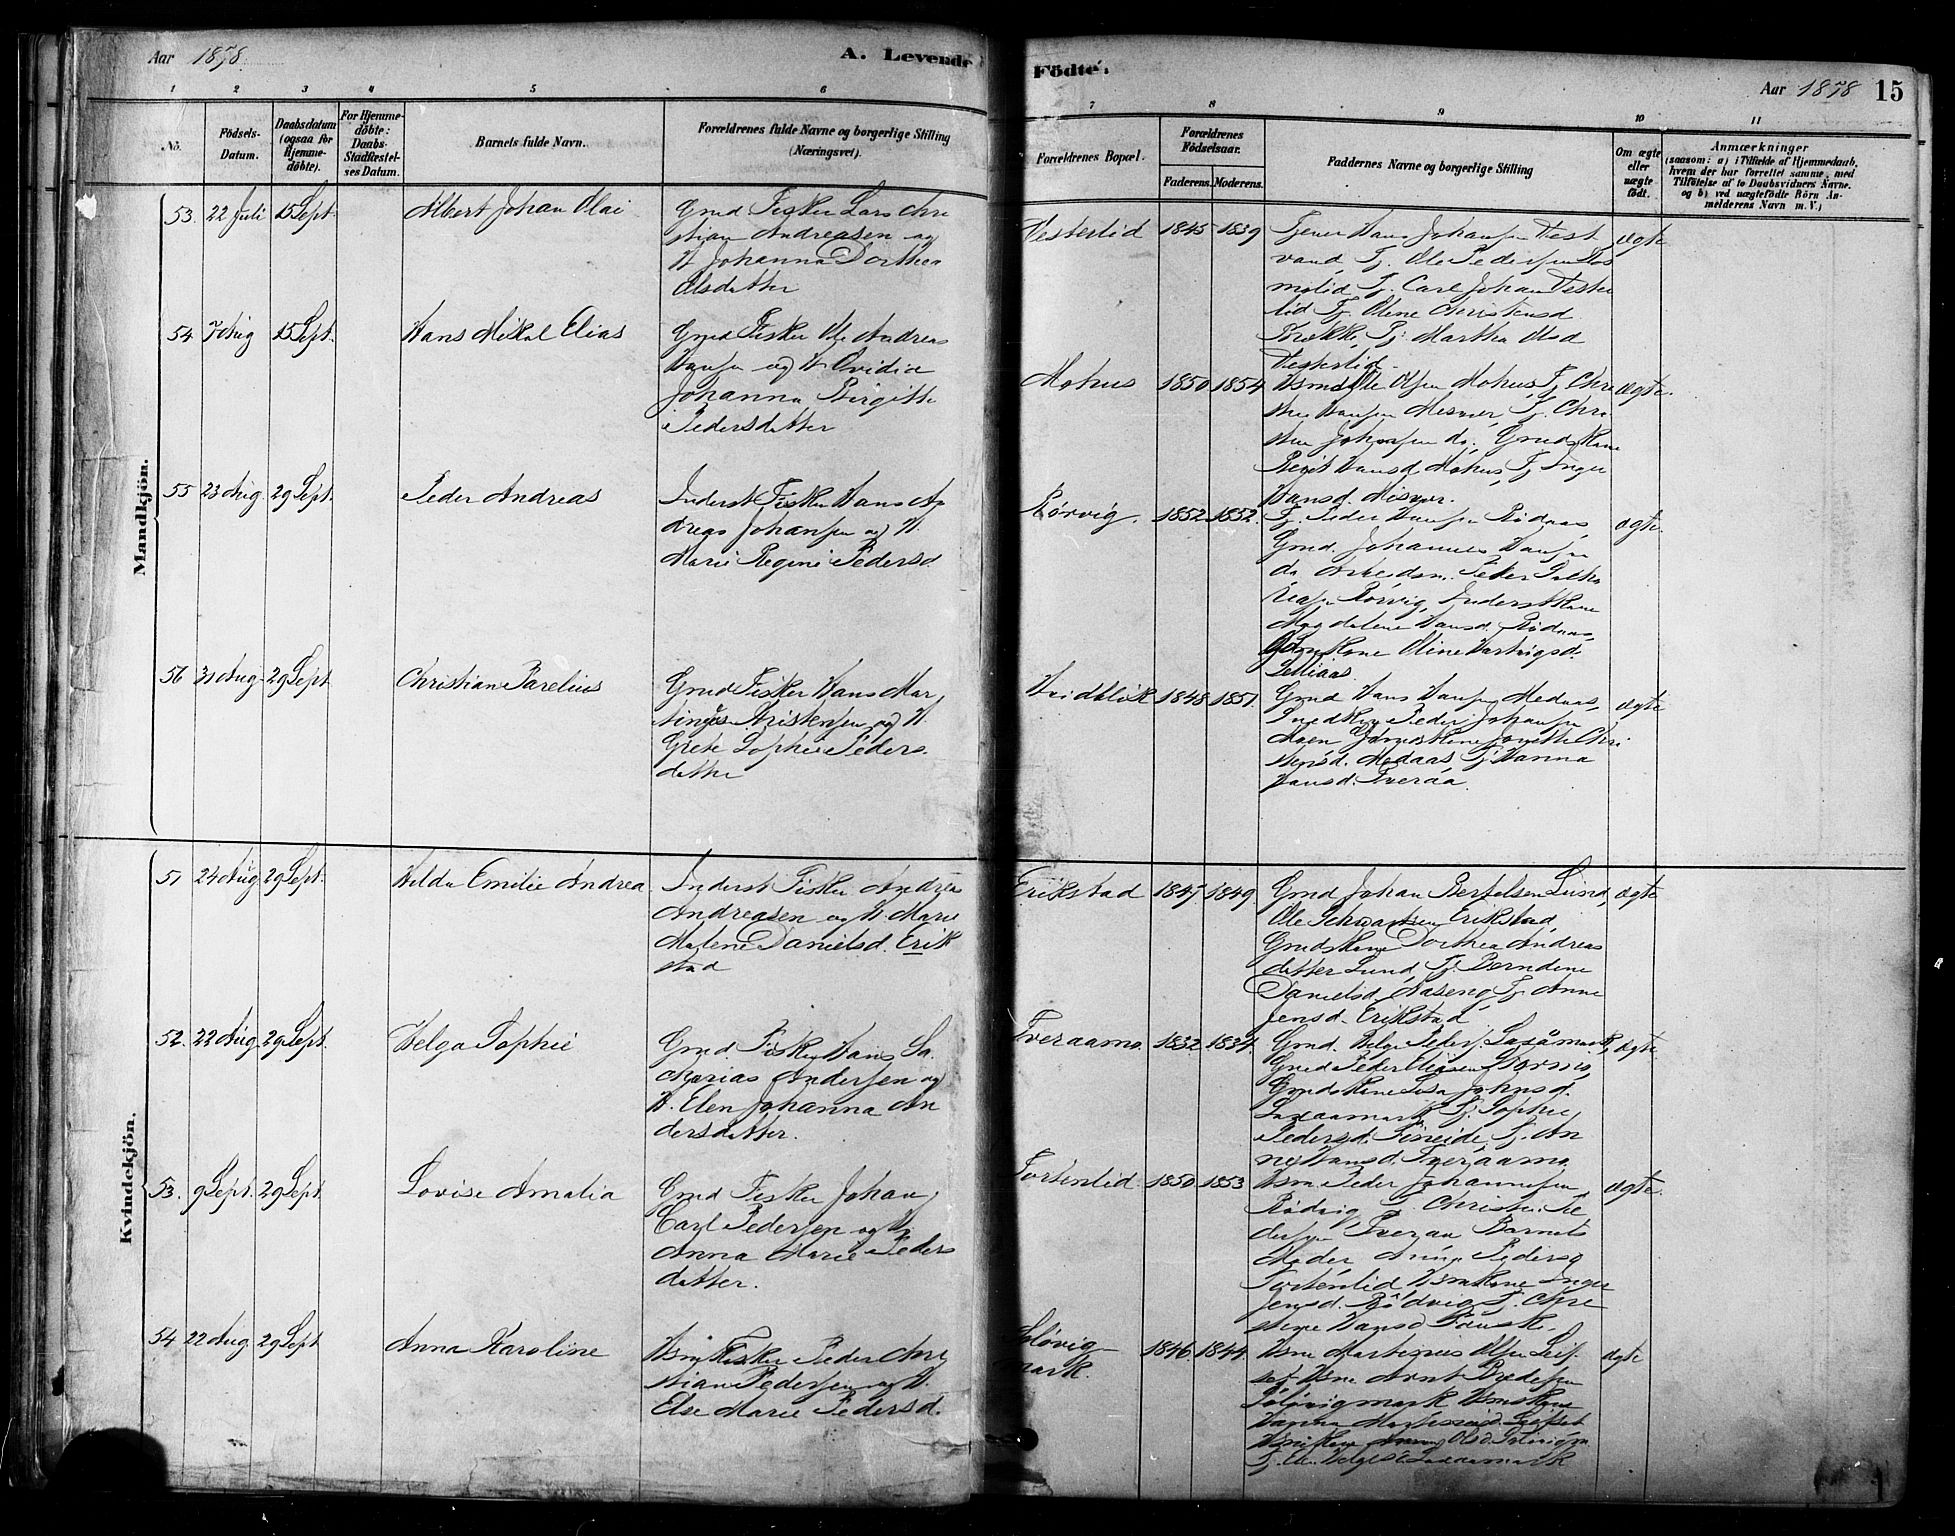 Aar 1878.
A. Levende Födte.
Aar 1878
15
1 2 3 4 5 6 7 8 9 10 11
No.
Födsels-
Datum.
Daabsdatum
(ogsaa for
Hjemme-
döbte).
For Hjemme-
döbte:
Daabs-
Stadfæstel-
ses Datum.
Barnets fulde Navn.
Forældrenes fulde Navne og borgerlige Stilling
(Næringsvei).
Forældrenes Bopæl.
Forældrenes
Födselsaar.
Faderens. Moderens.
Faddernes Navne og borgerlige Stilling
Om ægte
eller
uægte
födt.
Anmærkninger
(saasom: a) i Tilfælde af Hjemmedaab,
hvem der har forrettet samme, med
Tilföielse af to Daabsvidners Navne,
og b) ved uægtefödte Börn An-
melderens Navn m. V.)
Mandkjön.
53. 22 Juli 15 Sept. Albert Johan Olai
Gmd Fisker Lars Chri
stian Andreasen og
H. Johanna Dorthea
Olsdatter
Vesterlid 1845 1839
Tjener Hans Johansen Vest
vand Tj. Ole Pedersen
Tj. Carl Johan Vester
lid Tj. Oline Christensd.
Brække, Tj. Martha Olsd
Vesterlid.
ægte
54. 7 Aug 15 Sept. Hans Mikal Elias
Gmd Fisker Ole Andreas
Hansen og H. Ovidia
Johanna Birgitte
Pedersdatter
Mohus 1850 1854
Hsmd Ole Olsen Mohus, Tj. Chri
sten Hansen Misvær, Tj. Chri
sten Johansen do. Gmds Kone
Berit Hansd. Mohus, Tj. Inger
Hansd. Misvær.
ægte.
55 23 Aug. 29 Sept. Peder Andreas
Inderst Fisker Hans An
dreas Johansen og H.
Marie Regine Pedersd.
Rörvig. 1852 1852.
Tj. Peder Hansen Rödaas,
Gmd. Johannes Hansen
do Arbeidsm. Peder
Rörvig, Inderst Kone
Magdalene Hansd. Rödaas,
Kone Oline Hartvigsd.
ægte.
56 31 Aug. 29 Sept Christian Parelius
Gmd Fisker Hans Mar
tinius Kristensen og H.
Grete Sophie Peders
datter
Hvidblik 1848 1851.
Gmd Hans Hansen Medaas,
Peder Johansen
Moen Gmds Kone Jonette Chri
stensd. Medaas Tj. Hanna
Hansd. Tveraa.
ægte
Kvindekjön.
51 24 Aug 29 Sept. Hilda Emilie Andrea
Inderst Fisker Andreas
Andreasen og H. Marie
Malene Danielsd. Erik
stad
Erikstad 1847 1849
Gmd Johan Bertelsen Lund,
Ole Erikstad,
Gmds Kone Dorthea Andreas
datter Lund, Tj. Berndine
Danielsd. Aaseng, Tj. Anne
Jensd. Erikstad
ægte
52. 22 Aug. 29 Sept. Helga Sophie
Gmd. Fisker Hans Za
charias Andersen og
H. Elen Johanna An
dersdatter.
Tveraamo. 1832 1834.
Gmd. Helge Peders. Laxaamark,
Gmd Peder Eliasen
Gmds Kone Lisa Johnsd.
Laxaamark Tj. Sophie
Pedersd. Finneide, Tj. An
ne Hansd. Tveraamo.
ægte
53. 9 Sept. 29 Sept. Lovise Amalia
Gmd Fisker Johan
Carl Pedersen og H.
Anna Marie Peders
datter.
Tortenlid. 1850 1853
Hsm. Peder Johannesen
Rödvig, Tj. Christen Pe
dersen Tveraa Barnets
Moder Anna Pedersd
Tortenlid Hsmkone Inger
Jensd. Rödvig Tj. Chri
stine Hansd Fauske.
ægte.
54 22 Aug. 29 Sept Anna Karoline
Hsm Fisker Peder Chri
stian Pedersen og H.
Else Marie Pedersd.
mark. 1846. 1844.
Hsm Martinus Olsen Leif
set Hsm Arnt Pedersen
Hsmskone
Hanna Leifset
Hsmskone Olsd.
Tj. Laxaamark
ægte